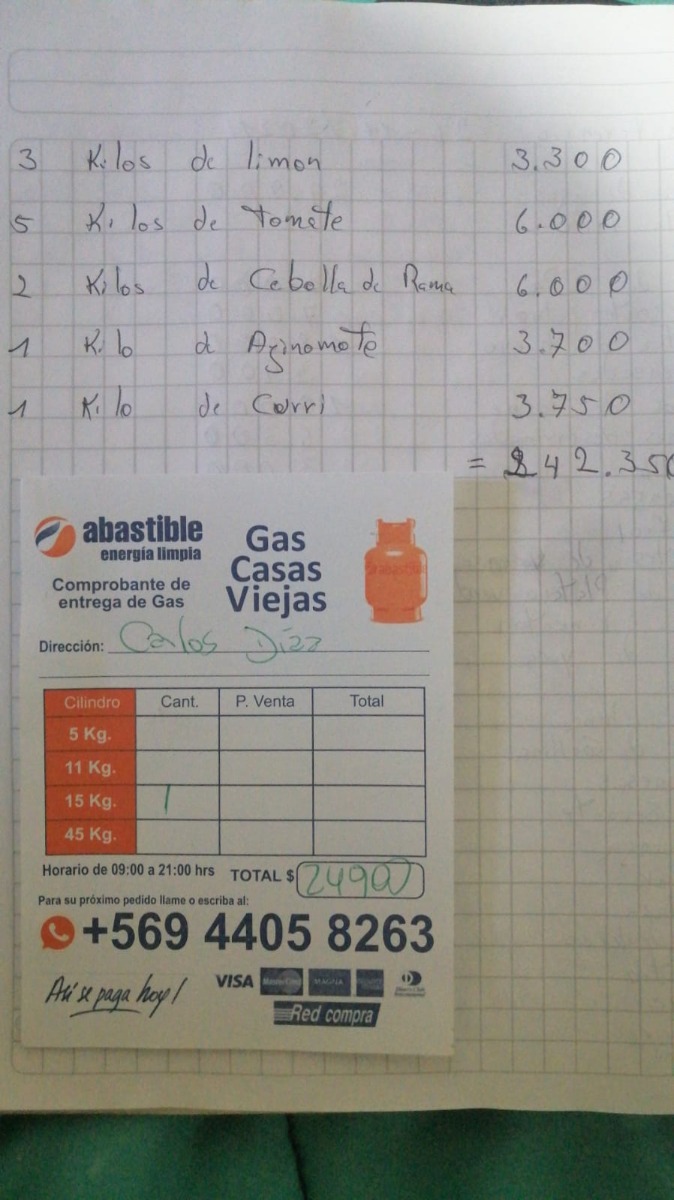 3 Kilos de limon 3.300
5 Kilos de tomate 6.000
2 Kilos de Cebolla de Rama 6.000
1 Kilo de Aginomote 3.700
1 Kilo de Curri 3.750
= $42.350
abastible
energía limpia
Comprobante de
entrega de Gas
Gas
Casas
Viejas
abastible
Dirección: Carlos Díaz
Cilindro Cant. P. Venta Total
5 Kg.
11 Kg.
15 Kg. 1
45 Kg.
Horario de 09:00 a 21:00 hrs TOTAL $ 24900
Para su próximo pedido llame o escriba al:
+569 4405 8263
Así se paga hoy!
VISA MasterCard MAGNA
Red compra